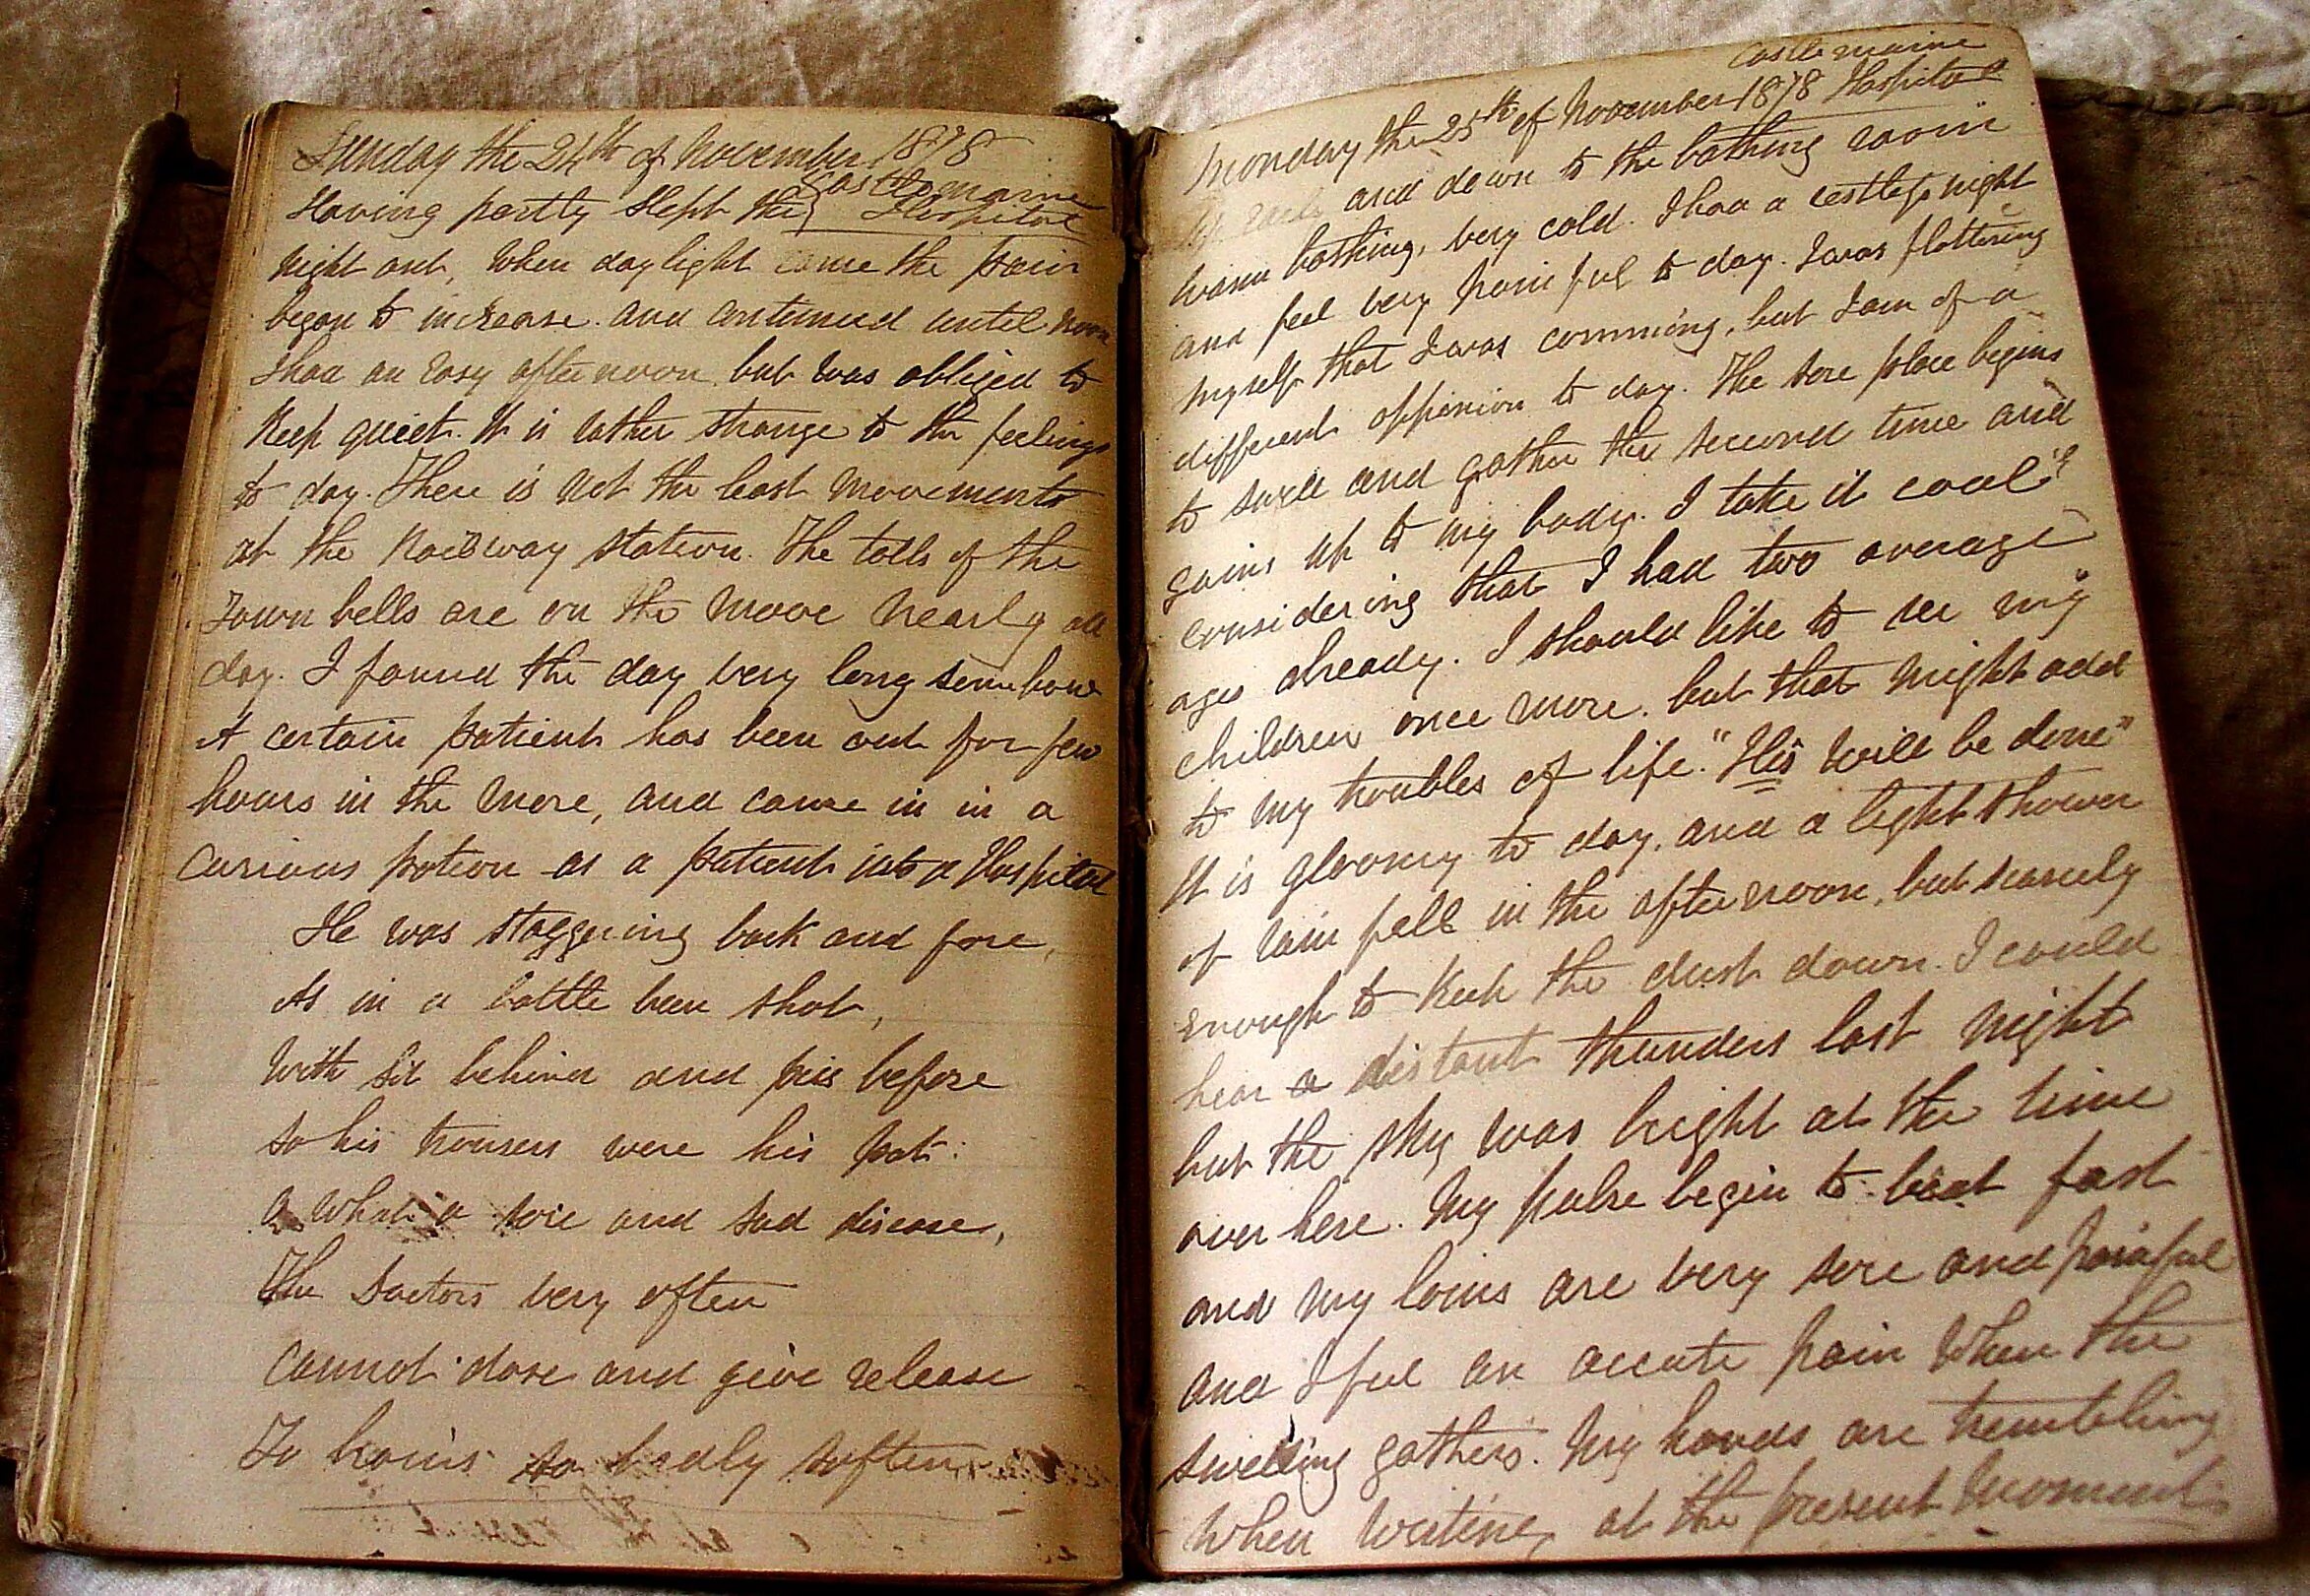 Sunday the 24th of November 1878
Castlemaine
Hospital
Having partly slept the
night out, when daylight came the pain
began to increase. and continued until noon
I had an easy afternoon but was obliged to
Keep quiet. It is rather strange to the feelings
to day. There is not the least movements
at the Railway station. The tolls of the
Town bells are on the move nearly all
day. I found the day very long somehow
A certain patient has been out for few
hours in the more, and came in in a
curious potion as a patient into a Hospital
He was staggering back and fore,
As in a battle been shot,
With sit behind and piss before
So his trousers were his pot:
What a sore and sad disease,
The Doctors very often
cannot dose and give release
To brains so badly soften
Castlemaine
Monday the 25th of November 1878 Hospital
and down to the bathing room
warm bathing, very cold. I had a restless night
and feel very painful to day. I was flattering
myself that I was comming, but I am of a
different oppinion to day. The sore place begins
to swell and gather the second time and
gains up to my body. I take it cool
considering that I had two average
ages already. I should like to see my
children once more. but that might add
to my troubles of life. "His will be done"
It is gloomy to day, and a light shower
of rain fell in the afternoon, but scarcely
enough to Keep the dust down. I could
hear a distant thunders last night
but the sky was bright at the time
over here. My pulse begin to beat fast
and my loins are very sore and painful
and I feel an accute pain when the
swelling gathers. My hands are trembling
When writing at the present moment